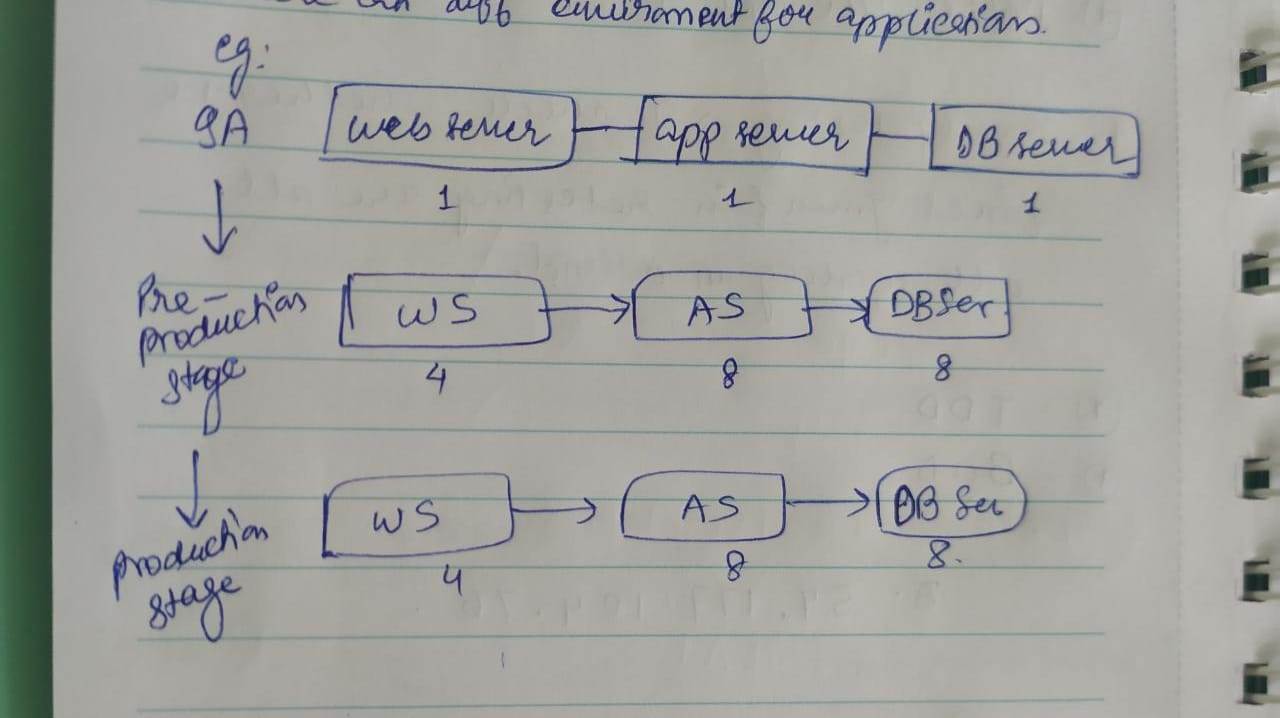 diff enviroment for applications.
eg:
QA web server app server DB server
1 1 1
Pre-production stage WS AS DB Ser
4 8 8
production stage WS AS DB Ser
4 8 8.